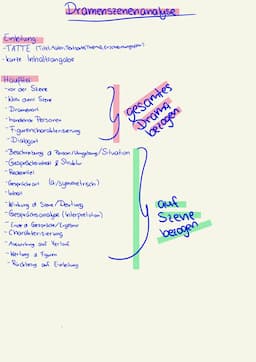 Dramenszenenanalyse
Einleitung
-TATTE (Titel, Autor, Textsorte, Thema, Erscheinungsjahr)
-kurze Inhaltsangabe
Hauptteil
-vor der Szene
-Dramenart
-handelnde Personen
-Figurencharakterisierung
-Dialogart
gesamtes
Drama
bezogen
-Beschreibung d. Person/Umgebung/Situation
-Gesprächsinhalt & Struktur
-Redeanteil
-Gesprächsart (a/symmetrisch)
-Inhalt
-Wirkung d. Szene/Deutung
-Gesprächsanalyse (Interpretation)
-Ende d. Gesprächs/Ergebnis
-Charakterisierung
-Auswirkung auf Verlauf
-Wertung d. Figuren
-Rückbezug auf Einleitung
auf
Szene
bezogen